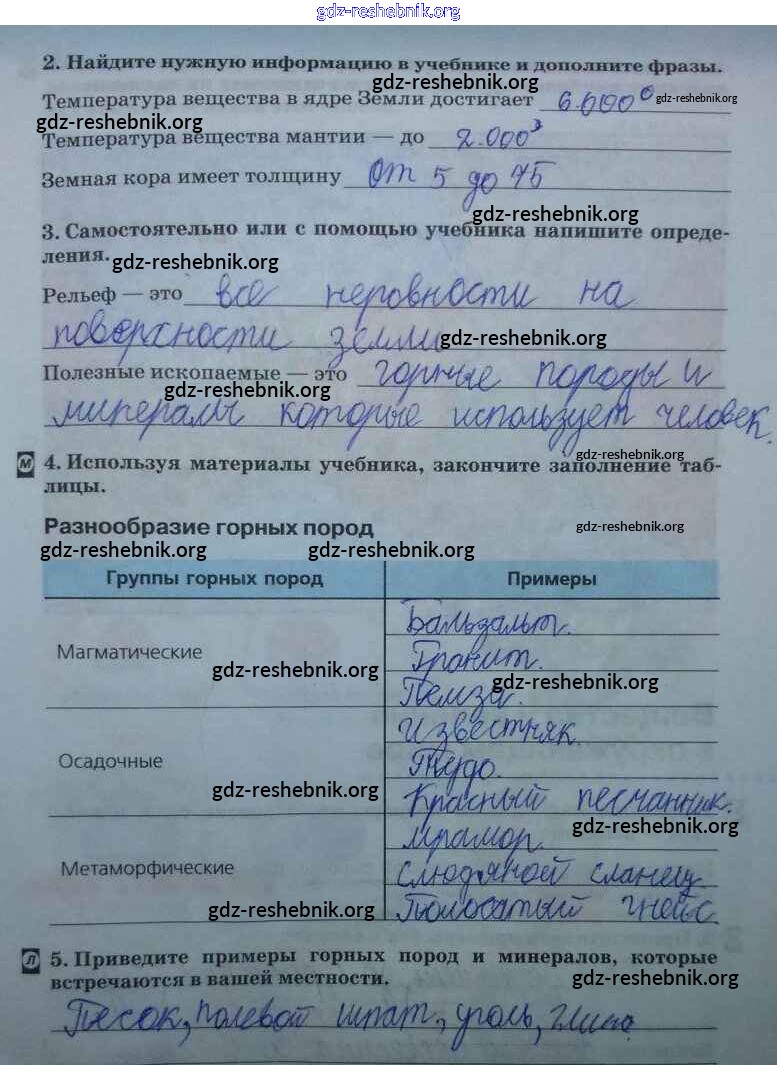 gdz-reshebnik.org
2. Найдите нужную информацию в учебнике и дополните фразы.
gdz-reshebnik.org
Температура вещества в ядре Земли достигает 6.000°
gdz-reshebnik.org
gdz-reshebnik.org
Температура вещества мантии — до 2.000°
Земная кора имеет толщину от 5 до 75
gdz-reshebnik.org
3. Самостоятельно или с помощью учебника напишите опреде-
ления.
gdz-reshebnik.org
Рельеф — это все неровности на
поверхности земли
gdz-reshebnik.org
Полезные ископаемые — это горные породы и
gdz-reshebnik.org
минералы которые использует человек.
gdz-reshebnik.org
М 4. Используя материалы учебника, закончите заполнение таб-
лицы.
Разнообразие горных пород
gdz-reshebnik.org
gdz-reshebnik.org gdz-reshebnik.org
Группы горных пород Примеры
Бальзальт.
Магматические
Гранит.
gdz-reshebnik.org
gdz-reshebnik.org
Пемза.
Известняк.
Осадочные
gdz-reshebnik.org
Красный песчанник.
gdz-reshebnik.org
Мрамор.
Метаморфические
слюдяной сланец
Полосатый гнейс
gdz-reshebnik.org
Л 5. Приведите примеры горных пород и минералов, которые
встречаются в вашей местности.
gdz-reshebnik.org
Песок, полевой шпат, уголь, глина